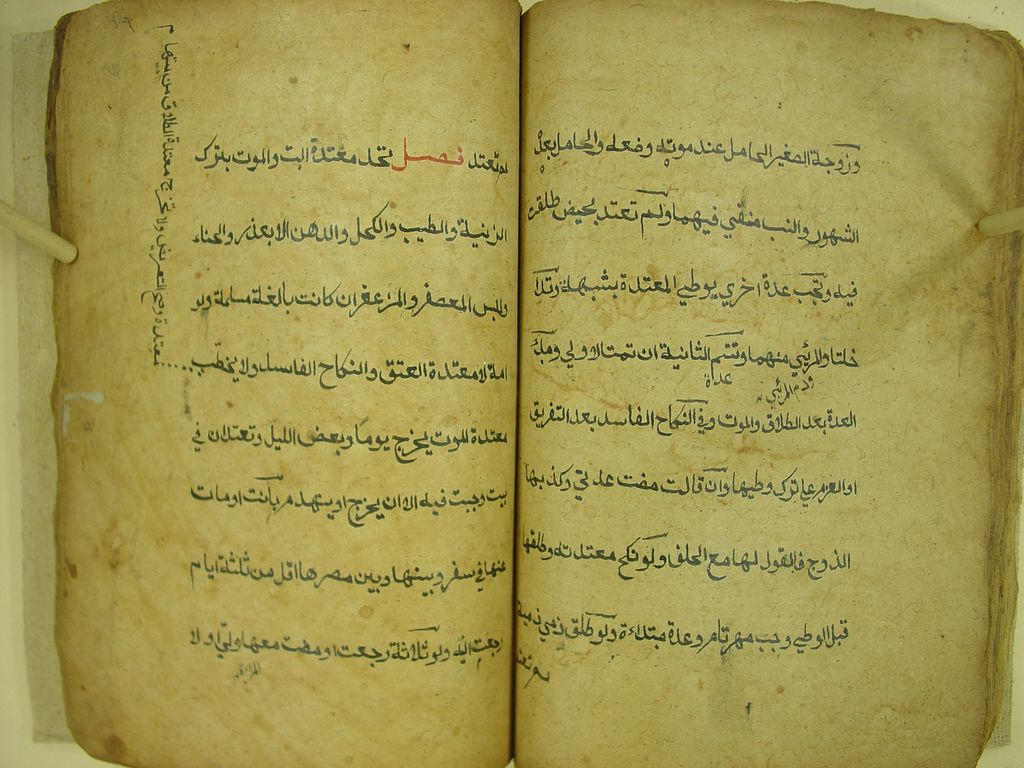 وزوجة الصغير الحامل عند موته وضعه والحامل بعده
الشهور والنسب منفي فيهما ولم تعتد بحيض طلقت
فيه وتجب عدة اخري بوطي المعتدة بشبهة وتدا
خلتا والمرئي منهما وتتم الثانية ان تمت الاولي ومبدأ
العدة بعد الطلاق والموت وفي النكاح الفاسد بعد التفريق
او العزم علي ترك وطيها وان قالت مضت عدتي وكذبها
الزوج فالقول لها مع الحلف ولو نكح معتدته وطلقها
قبل الوطي وجب مهر تام وعدة مبتدأة ولو طلق ذمي ذمية
لم تعتد
لم تعتد فصل تحد معتدة البت والموت بترك
الزينة والطيب والكحل والدهن الا بعذر والحناء
ولبس المعصفر والمزعفر ان كانت بالغة مسلمة ولو
امة لا معتدة العتق والنكاح الفاسد ولا يخطب
معتدة الموت يخرج يوما وبعض الليل وتعتدان في
بيت وجبت فيه الا ان يخرج او ينهدم بانت او مات
عنها في سفر وبينها وبين مصرها اقل من ثلثة ايام
رجعت اليه ولو ثلاثة رجعت او مضت معها ولي او لا
معتدة وصح التعريض ولا تخرج معتدة الطلاق من بيتها